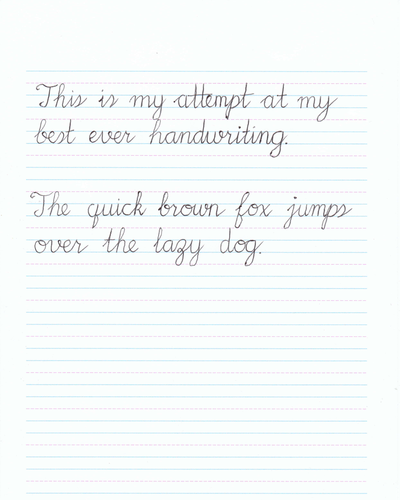 This is my attempt at my
best ever handwriting.
The quick brown fox jumps
over the lazy dog.